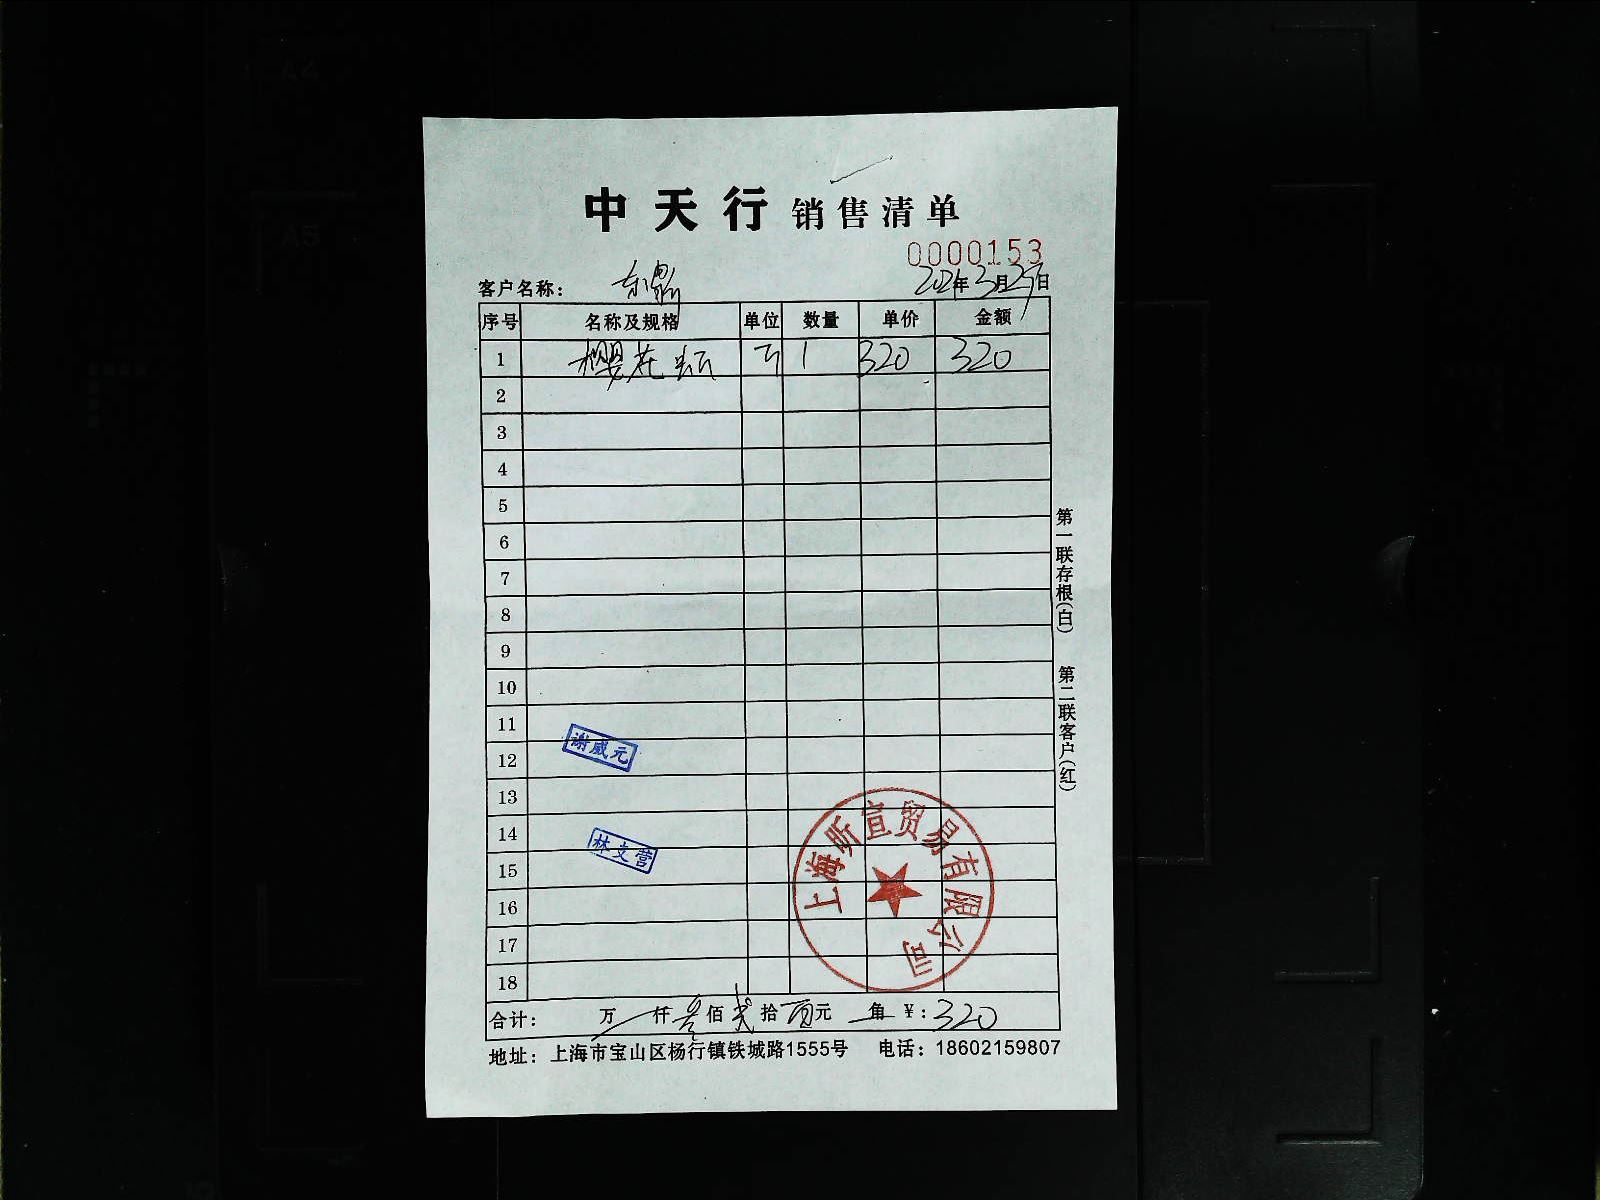 中天行销售清单
0000153
客户名称：东鼎
2021年3月29日
序号 名称及规格 单位 数量 单价 金额
1 樱花 1 320 320
2
3
4
5
6
7
8
9
10
11
谢威元
12
13
14
林文营
15
16
17
18
上海昕宣贸易有限公司
合计： 万 仟叁佰贰拾 元 角 ￥：320
地址：上海市宝山区杨行镇铁城路1555号 电话：18602159807
第一联存根(白) 第二联客户(红)